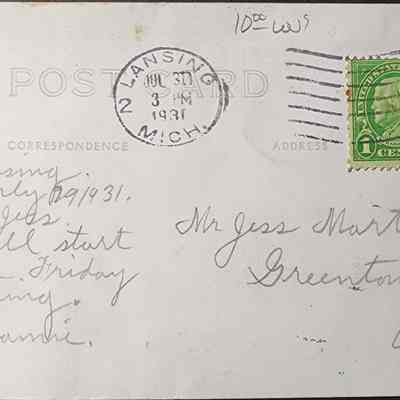 10⁰⁰
POST CARD
LANSING
JUL 30
3 PM
1931
MICH.
2
UNITED STATES
1
CORRESPONDENCE
ADDRESS
sing.
uly 29 1931.
Jess.
ll start
Friday
ing.
annie.
Mr Jess Mart
Greentow